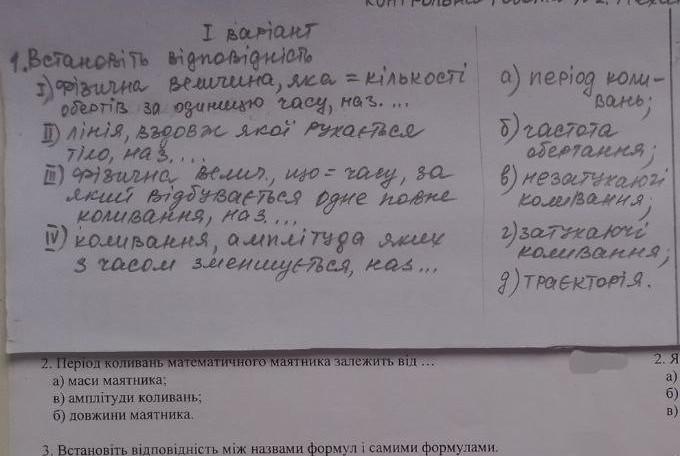 І варіант
1. Встановіть відповідність
I) фізична величина, яка = кількості
обертів за одиницю часу, наз. ...
II) лінія, вздовж якої рухається
тіло, наз. ...
III) фізична велич., що = часу, за
який відбувається одне повне
коливання, наз...
IV) коливання, амплітуда яких
з часом зменшується, наз...
а) період коли-
вань;
б) частота
обертання;
в) незатухаючі
коливання;
г) затухаючі
коливання;
д) траєкторія.
2. Період коливань математичного маятника залежить від …
а) маси маятника;
в) амплітуди коливань;
б) довжини маятника.
3. Встановіть відповідність між назвами формул і самими формулами.
2. Я
а)
б)
в)